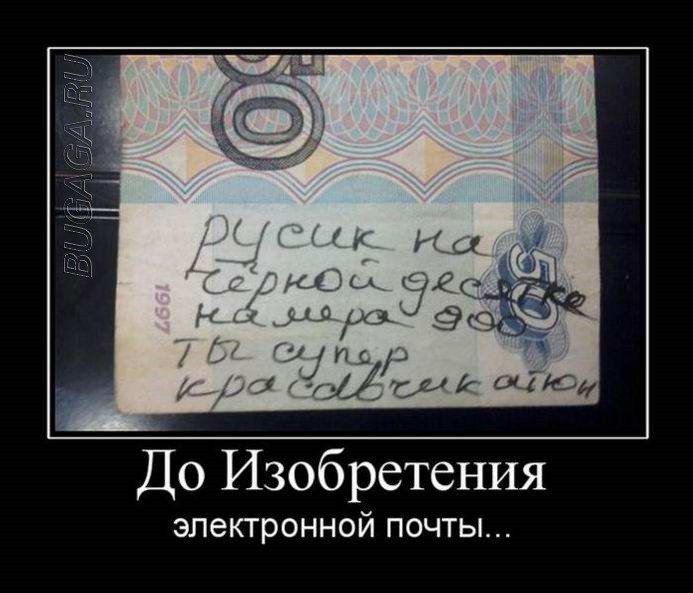 BUGAGA.RU
50
русик на
чёрной десятке
50
1997
намера 900
ты супер
красавчик
До Изобретения
электронной почты...